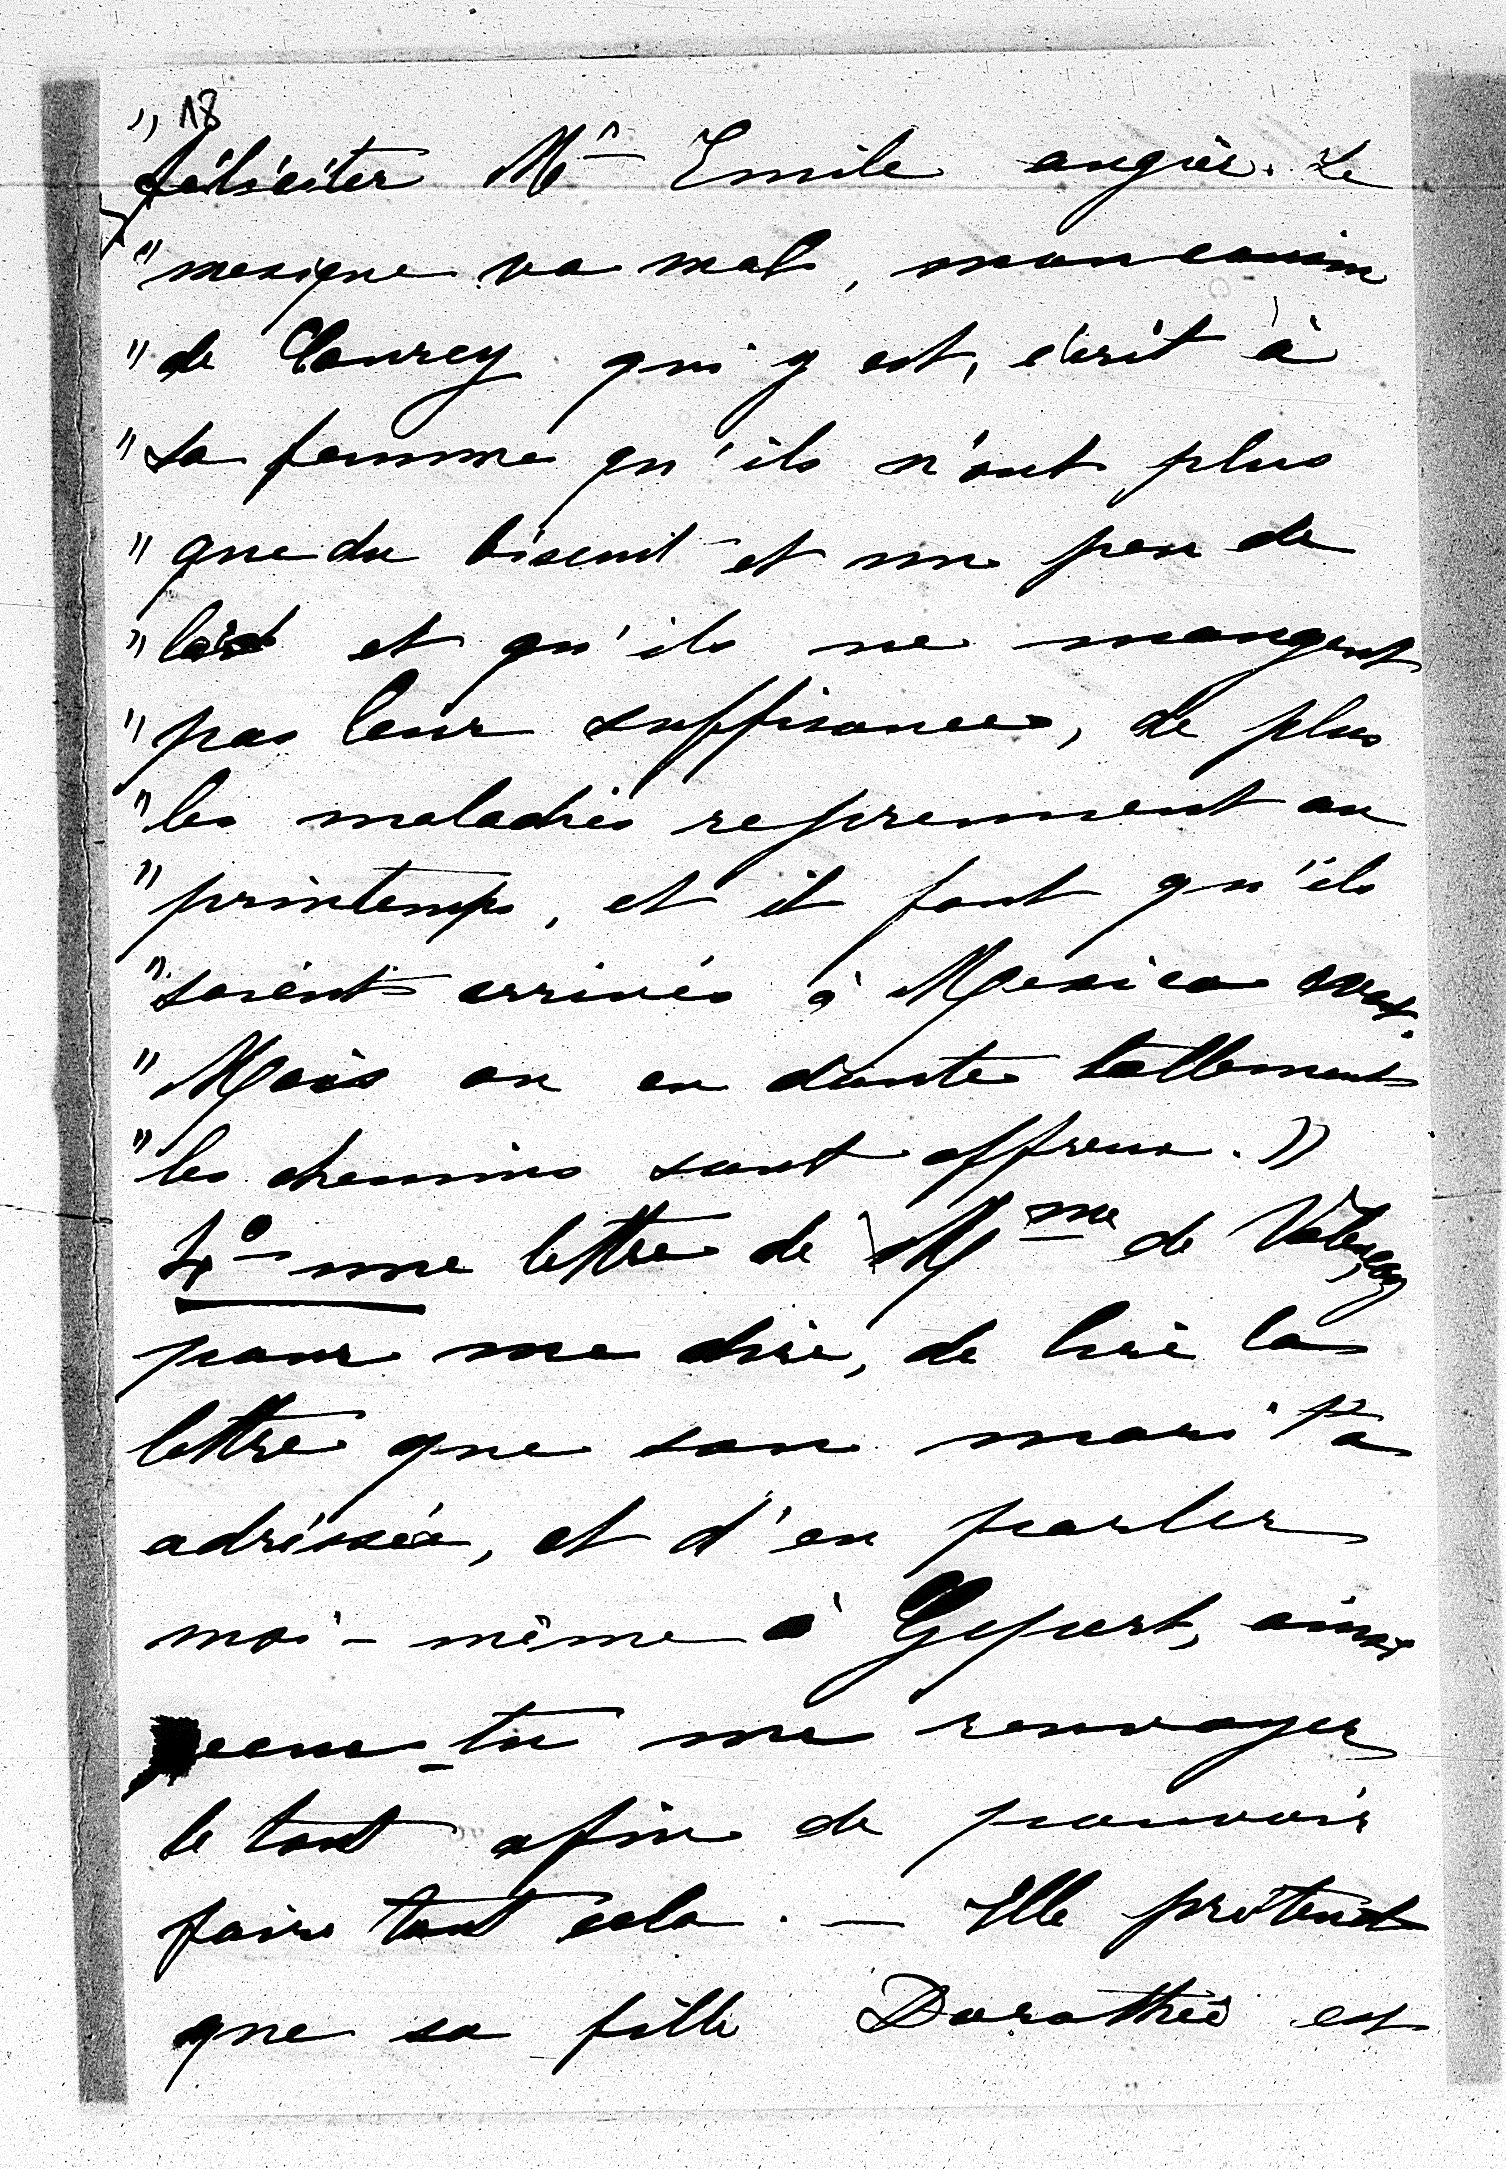 18
" féliciter Mr Emile augier. Le
" mexique va mal, mon cousin
" de Courcy qui y est, écrit à
" sa femme qu'ils n'ont plus
" que du biscuit et un peu de
" lard et qu'ils ne mangent
" pas leur suffisance, de plus
" les maladies reprennent au
" printemps, et il faut qu'ils
" soient arrivés à Mexico avant.
" Mais on en doute tellement
" les chemins sont affreux. "
4° une lettre de Mme de Valençay
pour me dire, de lire la
lettre que son mari t'a
adressée, et d'en parler
moi-même à Gepert, ainsi
veux-tu me renvoyer
le tout afin de pouvoir
faire tout cela. — Elle prétend
que sa fille Dorothée est